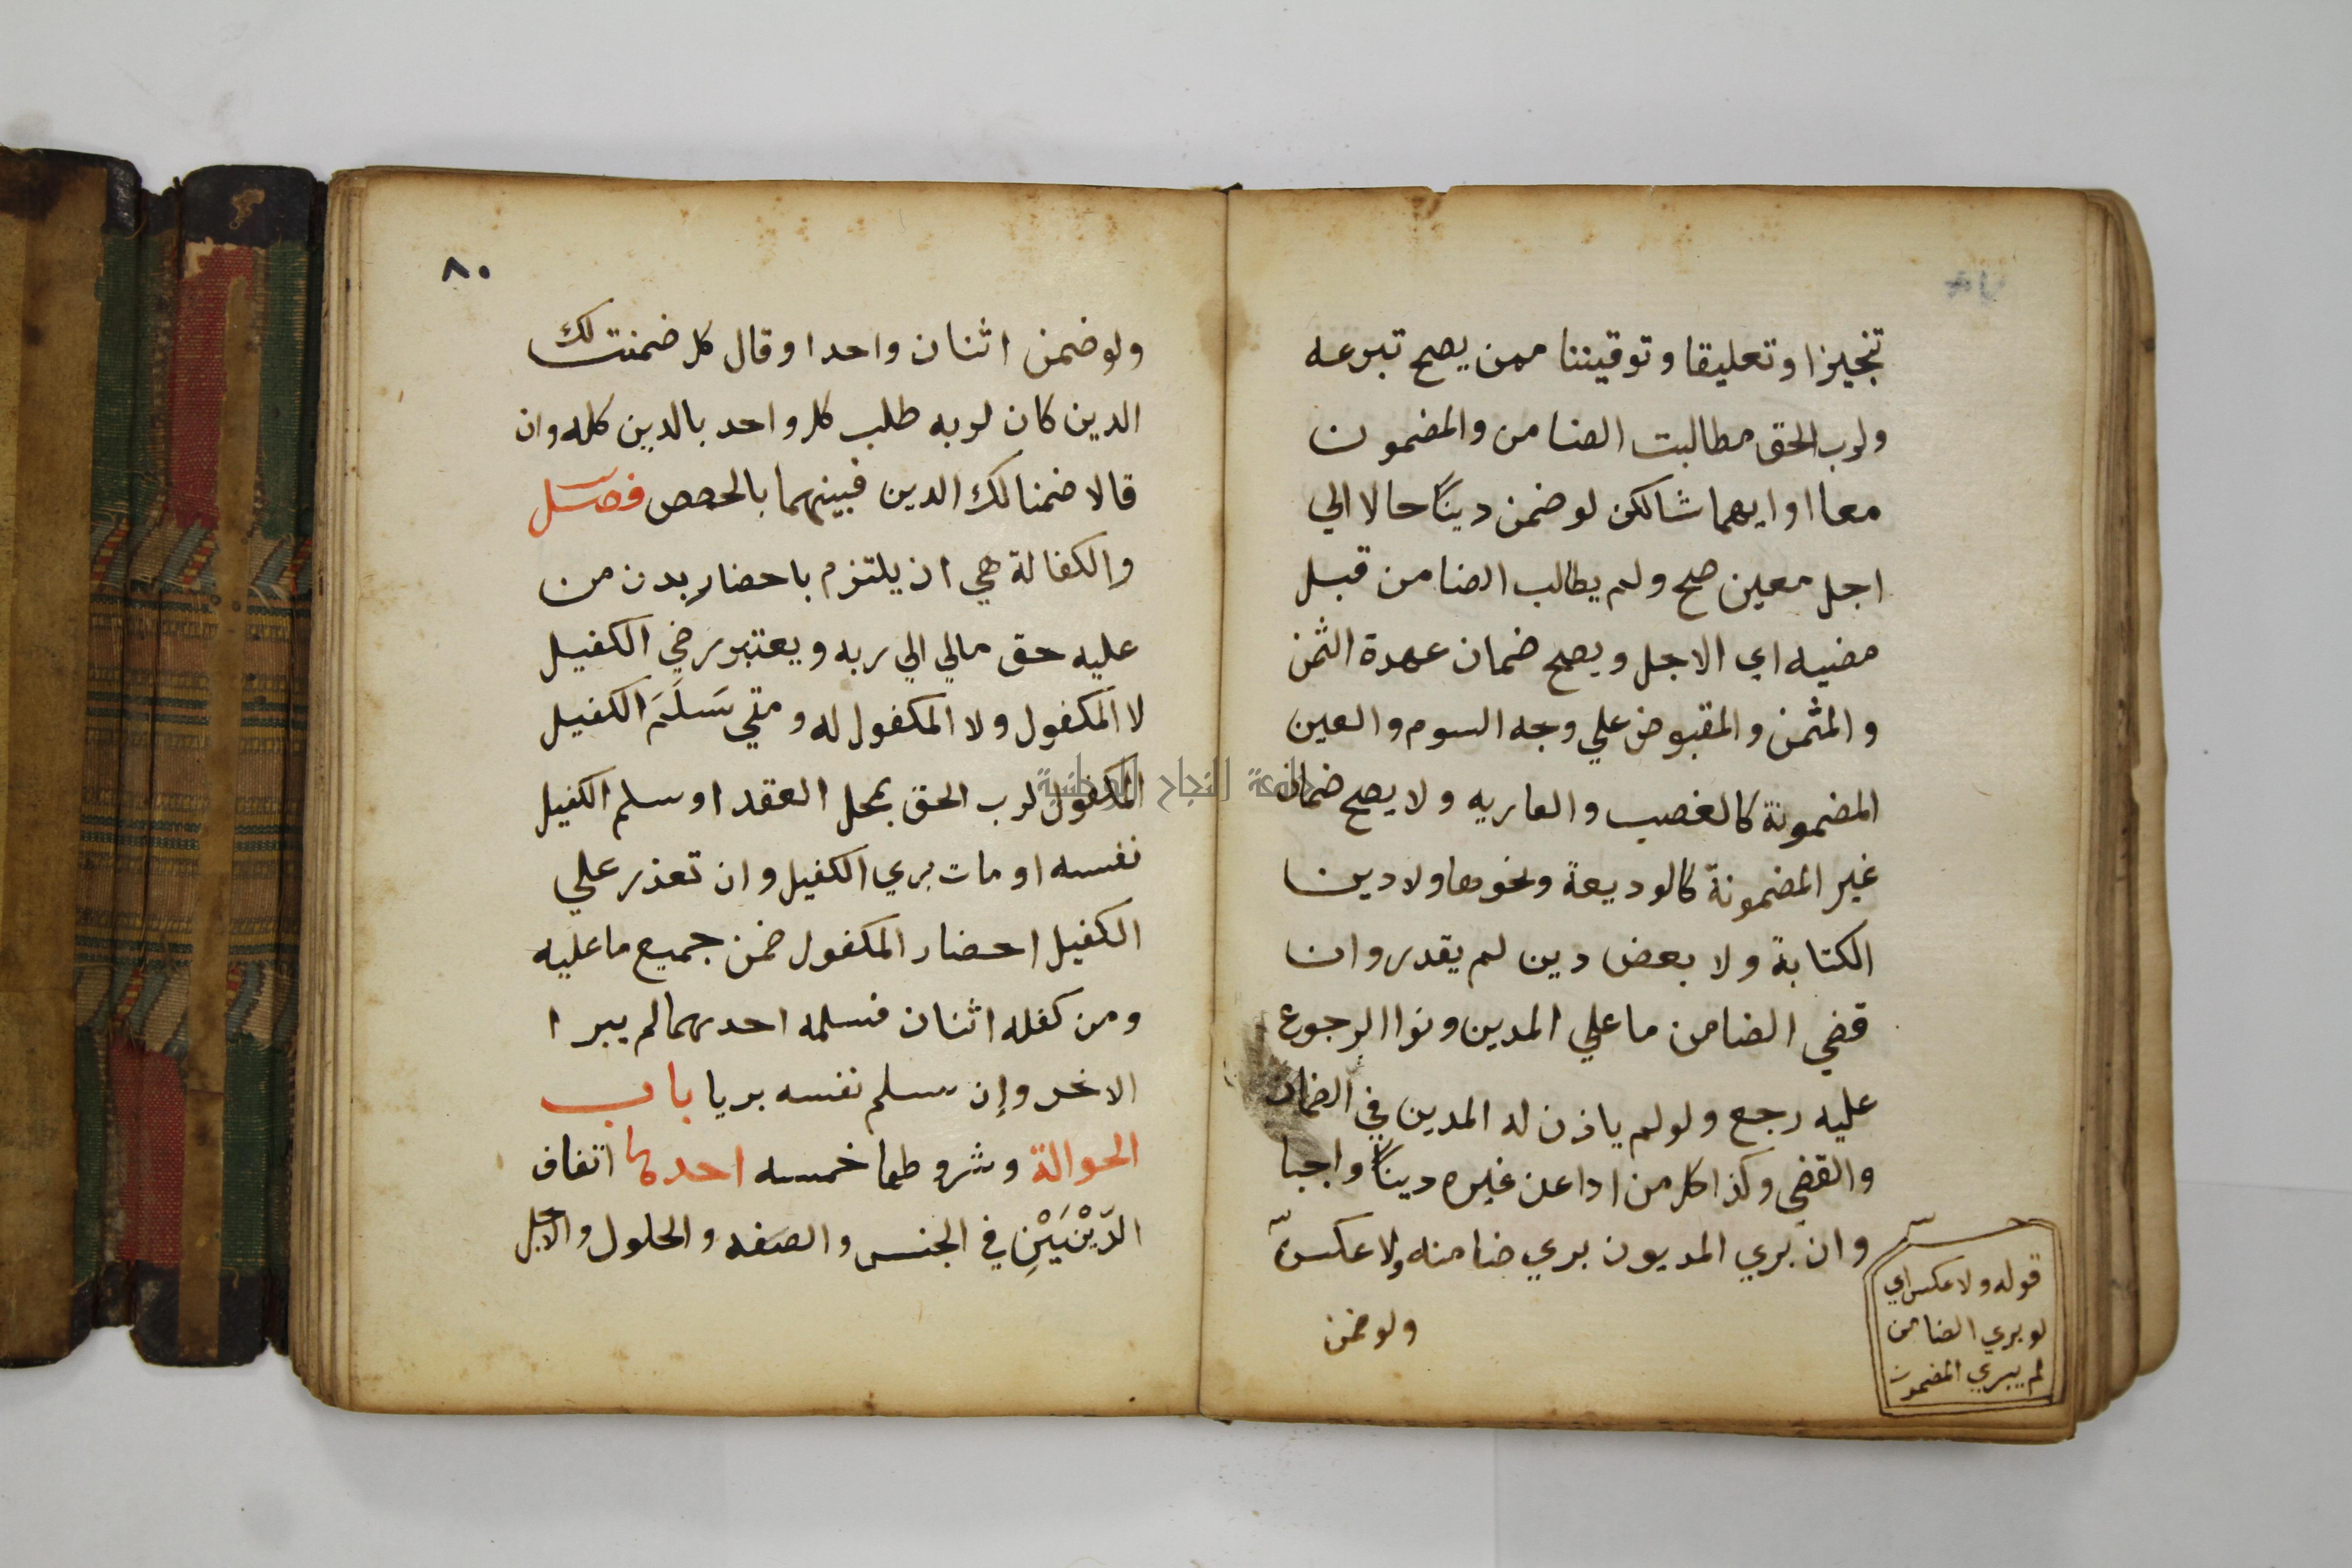 تنجيزا وتعليقا وتوقيتنا ممن يصح تبرعه
ولرب الحق مطالبت الضامن والمضمون
معا او ايهما شا لكن لو ضمن دينًا حالا الي
اجل معين صح ولم يطالب الضامن قبل
مضيه اي الاجل ويصح ضمان عهدة الثمن
والمثمن والمقبوض علي وجه السوم والعين
المضمونة كالغصب والعاريه ولا يصح ضمان
غير المضمونة كالوديعة ونحوها ولا دين
الكتابة ولا بعض دين لم يقدر وان
قضي الضامن ما علي المدين ونوا الرجوع
عليه رجع ولو لم ياذن له المدين في الضمان
والقضي وكذا كل من ادا عن غيره دينًا واجبا
وان بري المديون بري ضامنه ولا عكس
قوله ولا عكس اي
لو بري الضامن
لم يبري المضمون
ولو ضمن
٨٠
ولو ضمن اثنان واحدا وقال كل ضمنت لك
الدين كان لربه طلب كل واحد بالدين كله وان
قالا ضمنا لك الدين فبينهما بالحصص فصل
والكفالة هي ان يلتزم باحضار بدن من
عليه حق مالي الي ربه ويعتبر رضي الكفيل
لا المكفول ولا المكفول له ومتي سَلَمَ الكفيل
المكفول لرب الحق بمحل العقد او سلم الكفيل
نفسه او مات بري الكفيل وان تعذر علي
الكفيل احضار المكفول ضمن جميع ما عليه
ومن كفله اثنان فسلمه احدهما لم يبرا
الاخر وإن سلم نفسه بريا باب
الحوالة وشروطها خمسه احدها اتفاق
الدّيْنَيْنِ في الجنس والصفه والحلول والاجل
جامعة النجاح الوطنية